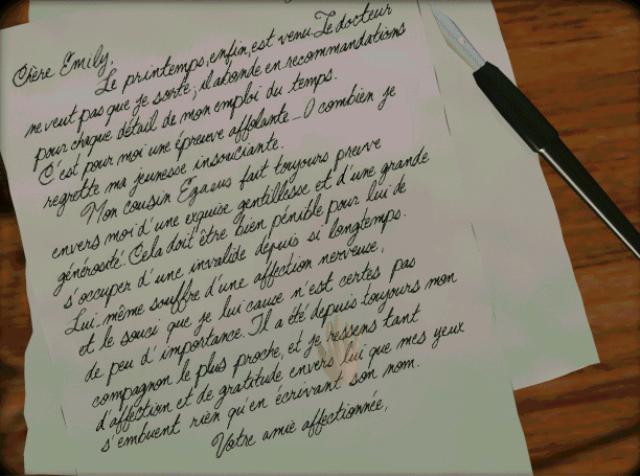 Chère Emily,
Le printemps, enfin, est venu. Le docteur
ne veut pas que je sorte; il abonde en recommandations
pour chaque détail de mon emploi du temps.
C'est pour moi une épreuve affolante... O combien je
regrette ma jeunesse insouciante.
Mon cousin Egaeus fait toujours preuve
envers moi d'une exquise gentillesse et d'une grande
générosité. Cela doit être bien pénible pour lui de
s'occuper d'une invalide depuis si longtemps.
Lui-même souffre d'une affection nerveuse,
et le souci que je lui cause n'est certes pas
de peu d'importance. Il a été depuis toujours mon
compagnon le plus proche, et je ressens tant
d'affection et de gratitude envers lui que mes yeux
s'embuent rien qu'en écrivant son nom.
Votre amie affectionnée,